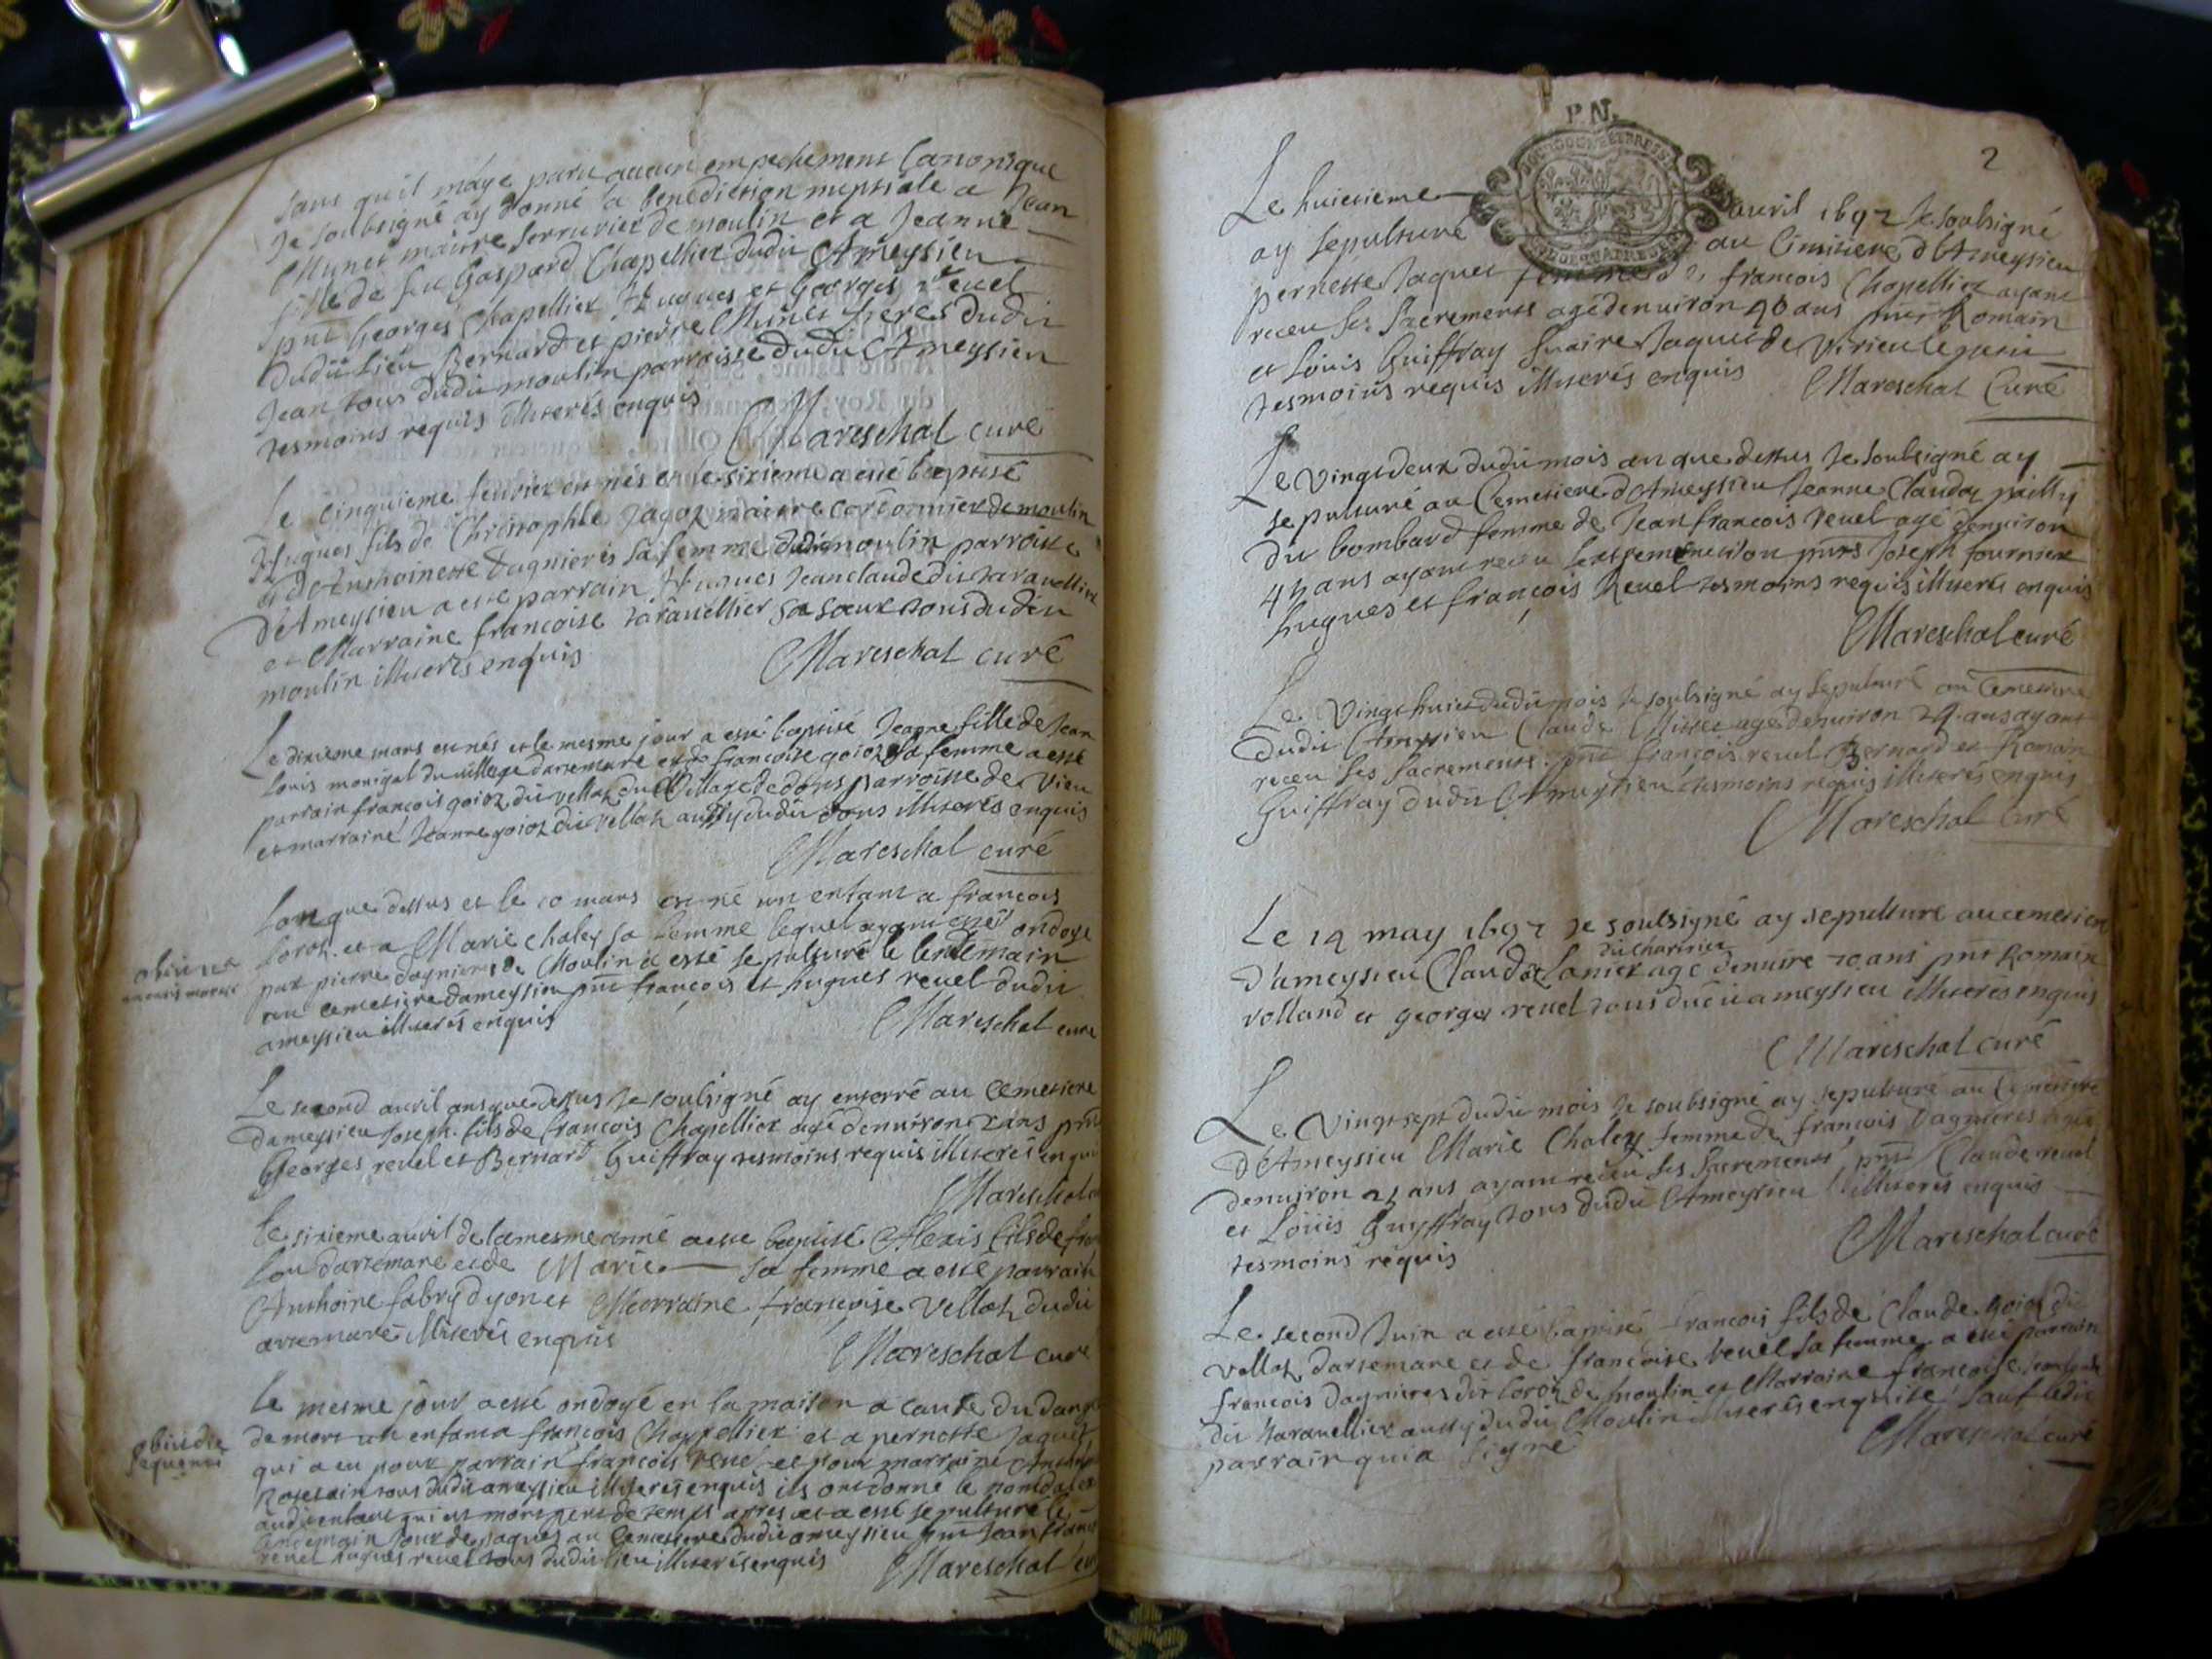 sans qu'il m'aye paru aucun empechement Canonique
Je soubsigné ay donné la benediction nuptiale a Jean
Munet maitre serrurier de moulin et a Jeanne
fille de feu Gaspard Chapellier dudit Ameysieu
pnt Georges Chapellier Hugues et Georges revel
dudit lieu Bernard et pierre Munet freres dudit
Jean tous dudit moulin parroisse dudit Ameysieu
tesmoins requis illiterés enquis
Mareschal curé
Le cinquieme fevrier est nés et le sixieme a esté baptisé
Hugues fils de Christophle maitre cordonnier de moulin
et d'Anthoinette dagnieres sa femme dudit moulin parroisse
d'Ameysieu a esté parrain Hugues Jeanclaude dit taravellier
et Marraine francoise taravellier sa soeur tous dudit
moulin illiterés enquis
Mareschal curé
Le dixieme mars est nés et le mesme jour a esté baptisé Jeanne fille de Jean
Louis monigal du village dartemare et de francoise goioz sa femme a esté
parrain françois goioz dit vellaz du Village de dons parroisse de Vieu
et marraine Jeanne goioz dit vellaz aussy dudit dons illiterés enquis
Mareschal curé
Lan que dessus et le 10 mars est né un enfant a francois
a Marie chaley sa femme lequel ayant esté ondoyé
obiit
par pierre dagnieres de Moulin a esté sepulturé le lendemain
au cemetiere dameysieu pnt françois et hugues revel dudit
ameysieu illiterés enquis
Mareschal curé
Le second avril an que dessus Je soubsigné ay enterré au Cemetiere
dameysieu Joseph fils de francois Chapellier agé denviron 2 ans pnt
Georges revel et Bernard Guiffray tesmoins requis illiterés enquis
Mareschal
Le sixieme avril de la mesme anné a esté baptisé Alexis fils de
dartemare et de Marie — sa femme a esté parrain
Anthoine fabry dyon et Marraine françoise Vellaz dudit
artemare illiterés enquis
Mareschal curé
Le mesme jour a esté ondoyé en la maison a cause du danger
de mort un enfant a françois Chappellier et a pernette Jaquet
obiit die
sequenti
qui a eu pour parrain francois revel et pour marraine
tous dudit ameysieu illiterés enquis ils ont donné le nom
audit enfant qui est mort peu de temps apres et a esté sepulturé le
lendemain Jour de paques au Cemetiere dudit ameysieu pnt Jean francois
revel hugues revel tous dudit lieu illiterés enquis
Mareschal
P.N.
2
Le huictieme — avril 1697 Je soubsigné
ay sepulturé au Cimitiere d'Ameysieu
pernette Jaquet femme de francois Chapellier ayant
receu ses Sacrements agé denviron 40 ans pnts Romain
et Louis Guiffray
tesmoins requis illiterés enquis
Mareschal Curé
Le vingt deux dudit mois an que dessus Je soubsigné ay
sepulturé au Cemetiere d'Ameysieu Jeanne Claudaz pailly
dit bombard femme de Jean francois revel agé denviron
ans ayant receu pnts Joseph fournier
hugues et françois Revel tesmoins requis illiterés enquis
Mareschal curé
Le Vingt huict dudit mois Je soubsigné ay Sepulturé au Cemetiere
dudit Ameysieu Claude agé denviron 24 ans ayant
receu ses Sacrements pnt françois revel Bernard et Romain
Guiffray dudit Ameysieu tesmoins requis illiterés enquis
Mareschal curé
Le 14 may 1697 Je soubsigné ay sepulturé au cemetiere
d'ameysieu Claudaz agé denviron 70 ans pnt Romain
volland et georges revel tous dudit ameysieu illiterés enquis
Mareschal curé
Le Vingt sept dudit mois Je soubsigné ay sepulturé au Cemetiere
d'Ameysieu Marie Chaley femme de francois dagnieres agée
denviron ans ayant receu ses Sacrements pnt Claude revel
et Louis Guyffray tous dudit Ameysieu illiterés enquis
tesmoins requis
Mareschal curé
Le second Juin a esté baptisé francois fils de Claude goioz dit
vellaz dartemare et de francoise revel sa femme a esté parrain
francois dagnieres dit de moulin et Marraine francoise Jeanclaude
dit taravellier aussy dudit Moulin illiterés enquise sauf ledit
parrain qui a signé
Mareschal curé